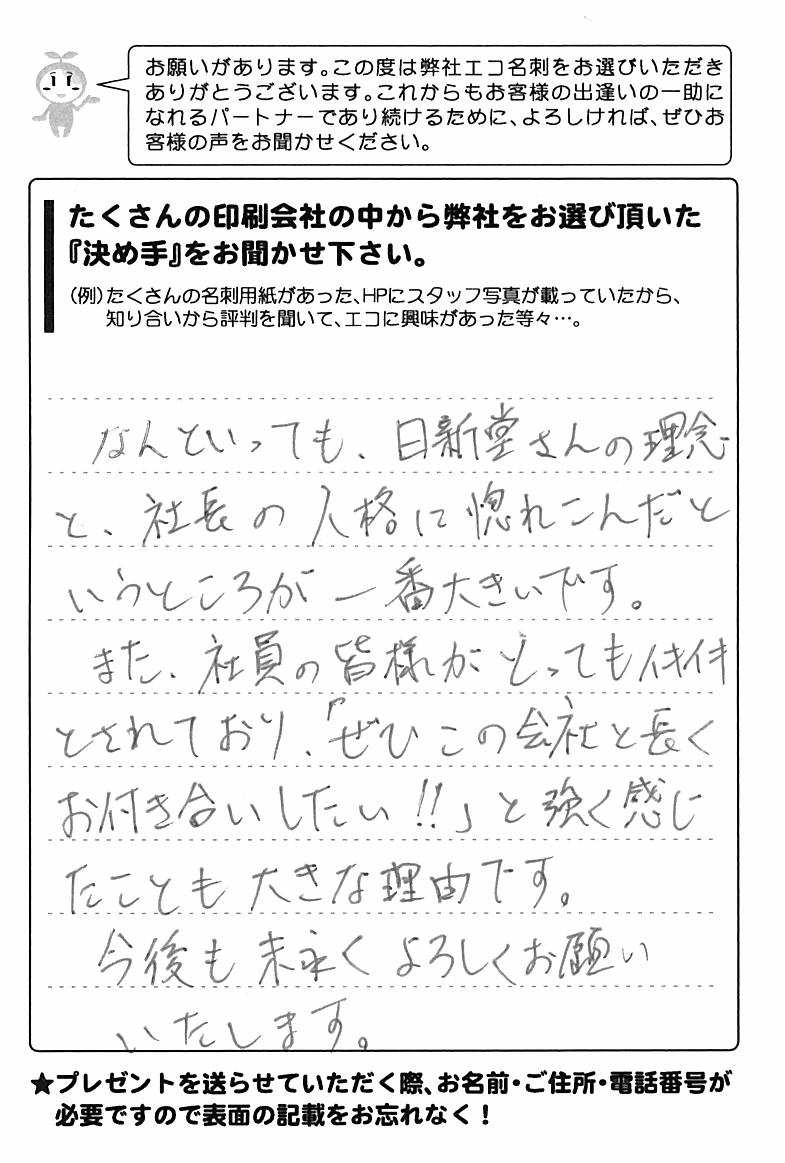 お願いがあります。この度は弊社エコ名刺をお選びいただき
ありがとうございます。これからもお客様の出逢いの一助に
なれるパートナーであり続けるために、よろしければ、ぜひお
客様の声をお聞かせください。
たくさんの印刷会社の中から弊社をお選び頂いた
『決め手』をお聞かせ下さい。
(例)たくさんの名刺用紙があった、HPにスタッフ写真が載っていたから、
知り合いから評判を聞いて、エコに興味があった等々…。
なんといっても、日新堂さんの理念
と、社長の人格に惚れこんだと
いうところが一番大きいです。
また、社員の皆様がとってもイキイキ
とされており、「ぜひこの会社と長く
お付き合いしたい!!」と強く感じ
たことも大きな理由です。
今後も末永くよろしくお願い
いたします。
★プレゼントを送らせていただく際、お名前・ご住所・電話番号が
必要ですので表面の記載をお忘れなく！